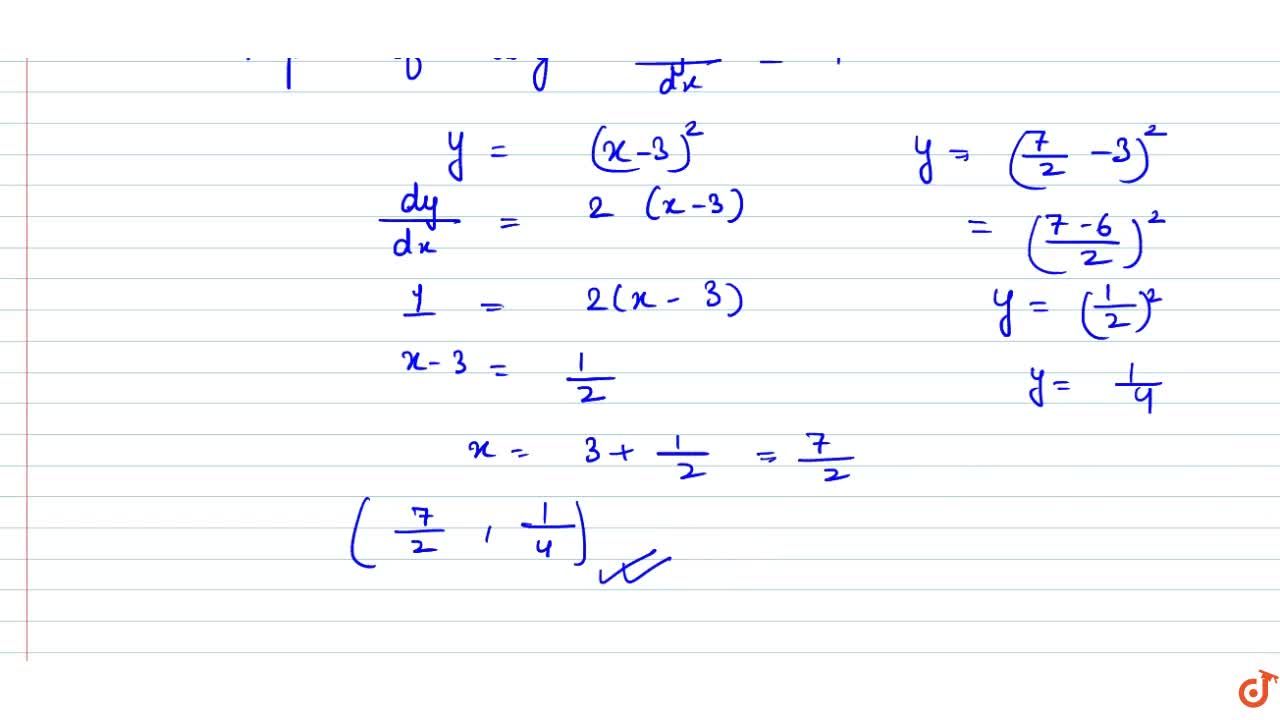 dx
y = (x-3)²
dy/dx = 2 (x-3)
1 = 2(x - 3)
x-3 = 1/2
x = 3 + 1/2 = 7/2
(7/2 , 1/4)
y = (7/2 - 3)²
= ((7-6)/2)²
y = (1/2)²
y = 1/4